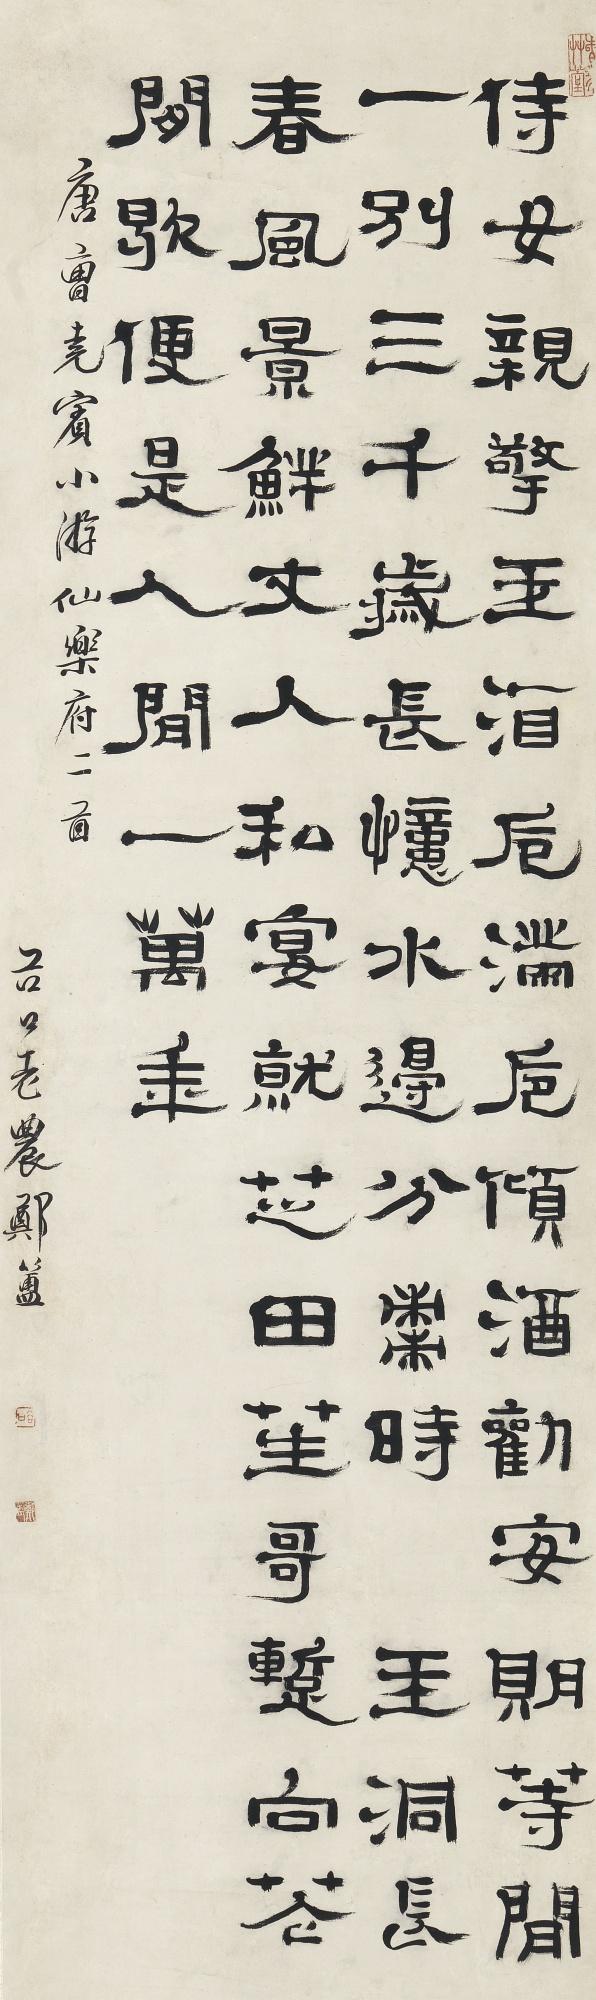 侍女親擎玉酒卮滿卮傾酒勸安期等閒
一別三千歲長憶水邊分棗時 玉洞長
春風景鮮丈人私宴就芝田笙哥蹔向花
閒歇便是人閒一萬年
唐曹堯賓小游仙樂府二首
谷口老農鄭簠